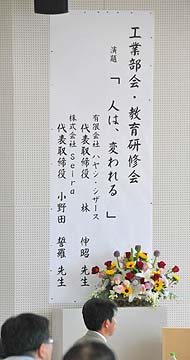 工業部会・教育研修会
演題 「 人は、変われる 」
有限会社ハヤシ・シザース
代表取締役 林 伸昭 先生
株式会社 Seira
代表取締役 小野田 誓羅 先生